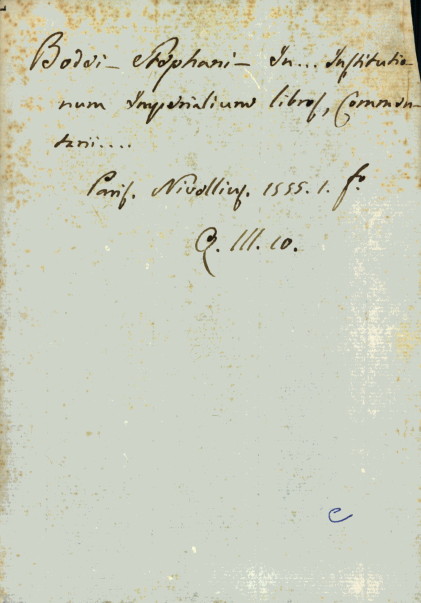 Bodei - Stephani - In... Institutio-
num Imperialium libros, Commen-
tarii....
Paris. Nivellius. 1555. 1. fo.
Q. III. 10.
e